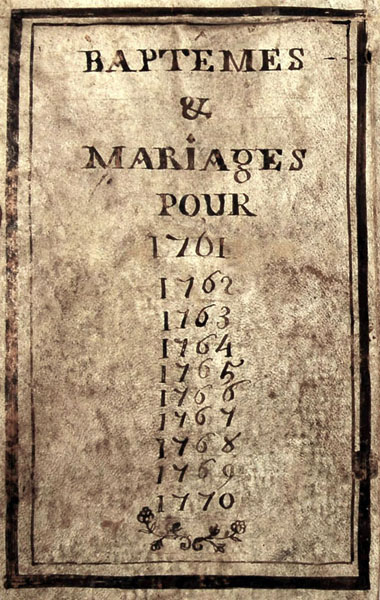 BAPTEMES
&
MARIAGES
POUR
1761
1762
1763
1764
1765
1766
1767
1768
1769
1770